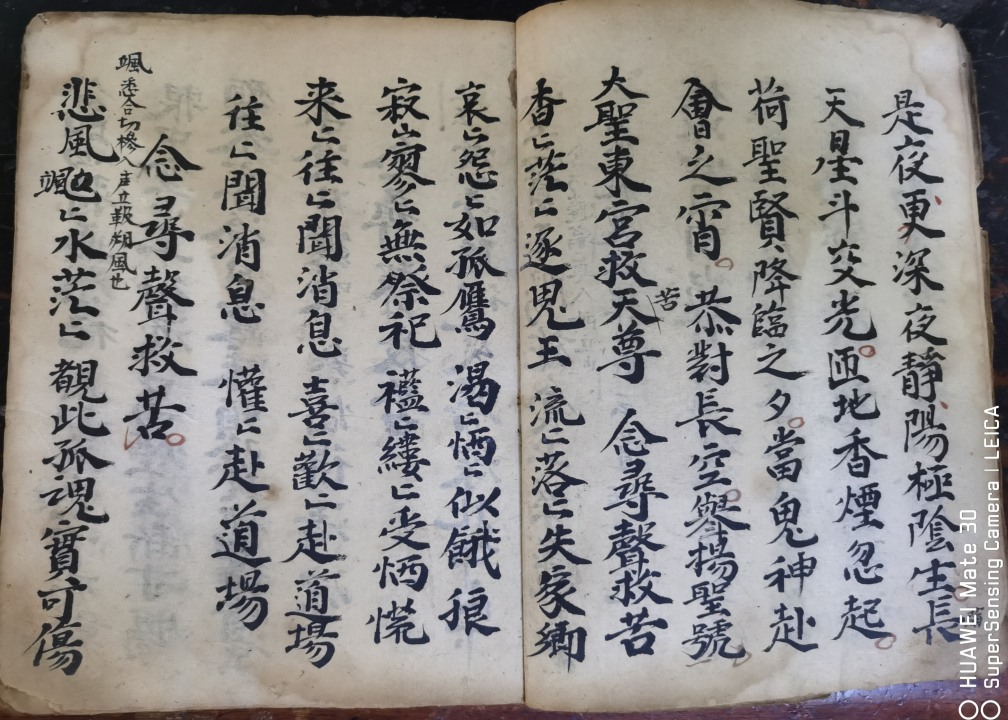 是夜更深夜靜陽極陰生長
天星斗交光匝地香煙忽起
荷聖賢降臨之夕當鬼神赴
會之宵 恭對長空舉揚聖號
大聖東宮救天尊 念尋聲救苦
苦
香〻茫〻逐鬼王 流〻落〻失家鄉
哀〻怨〻如孤鷹 渴〻恓〻似餓狼
寂〻寥〻無祭祀 襤〻縷〻受恓慌
来〻往〻聞消息 喜〻歡〻赴道場
往〻聞消息 懽〻赴道場
念尋聲救苦
颯悉合切 入 立 翔風也
悲風 〻水茫〻 觀此孤魂實可傷
颯
HUAWEI Mate 30
SuperSensing Camera | LEICA